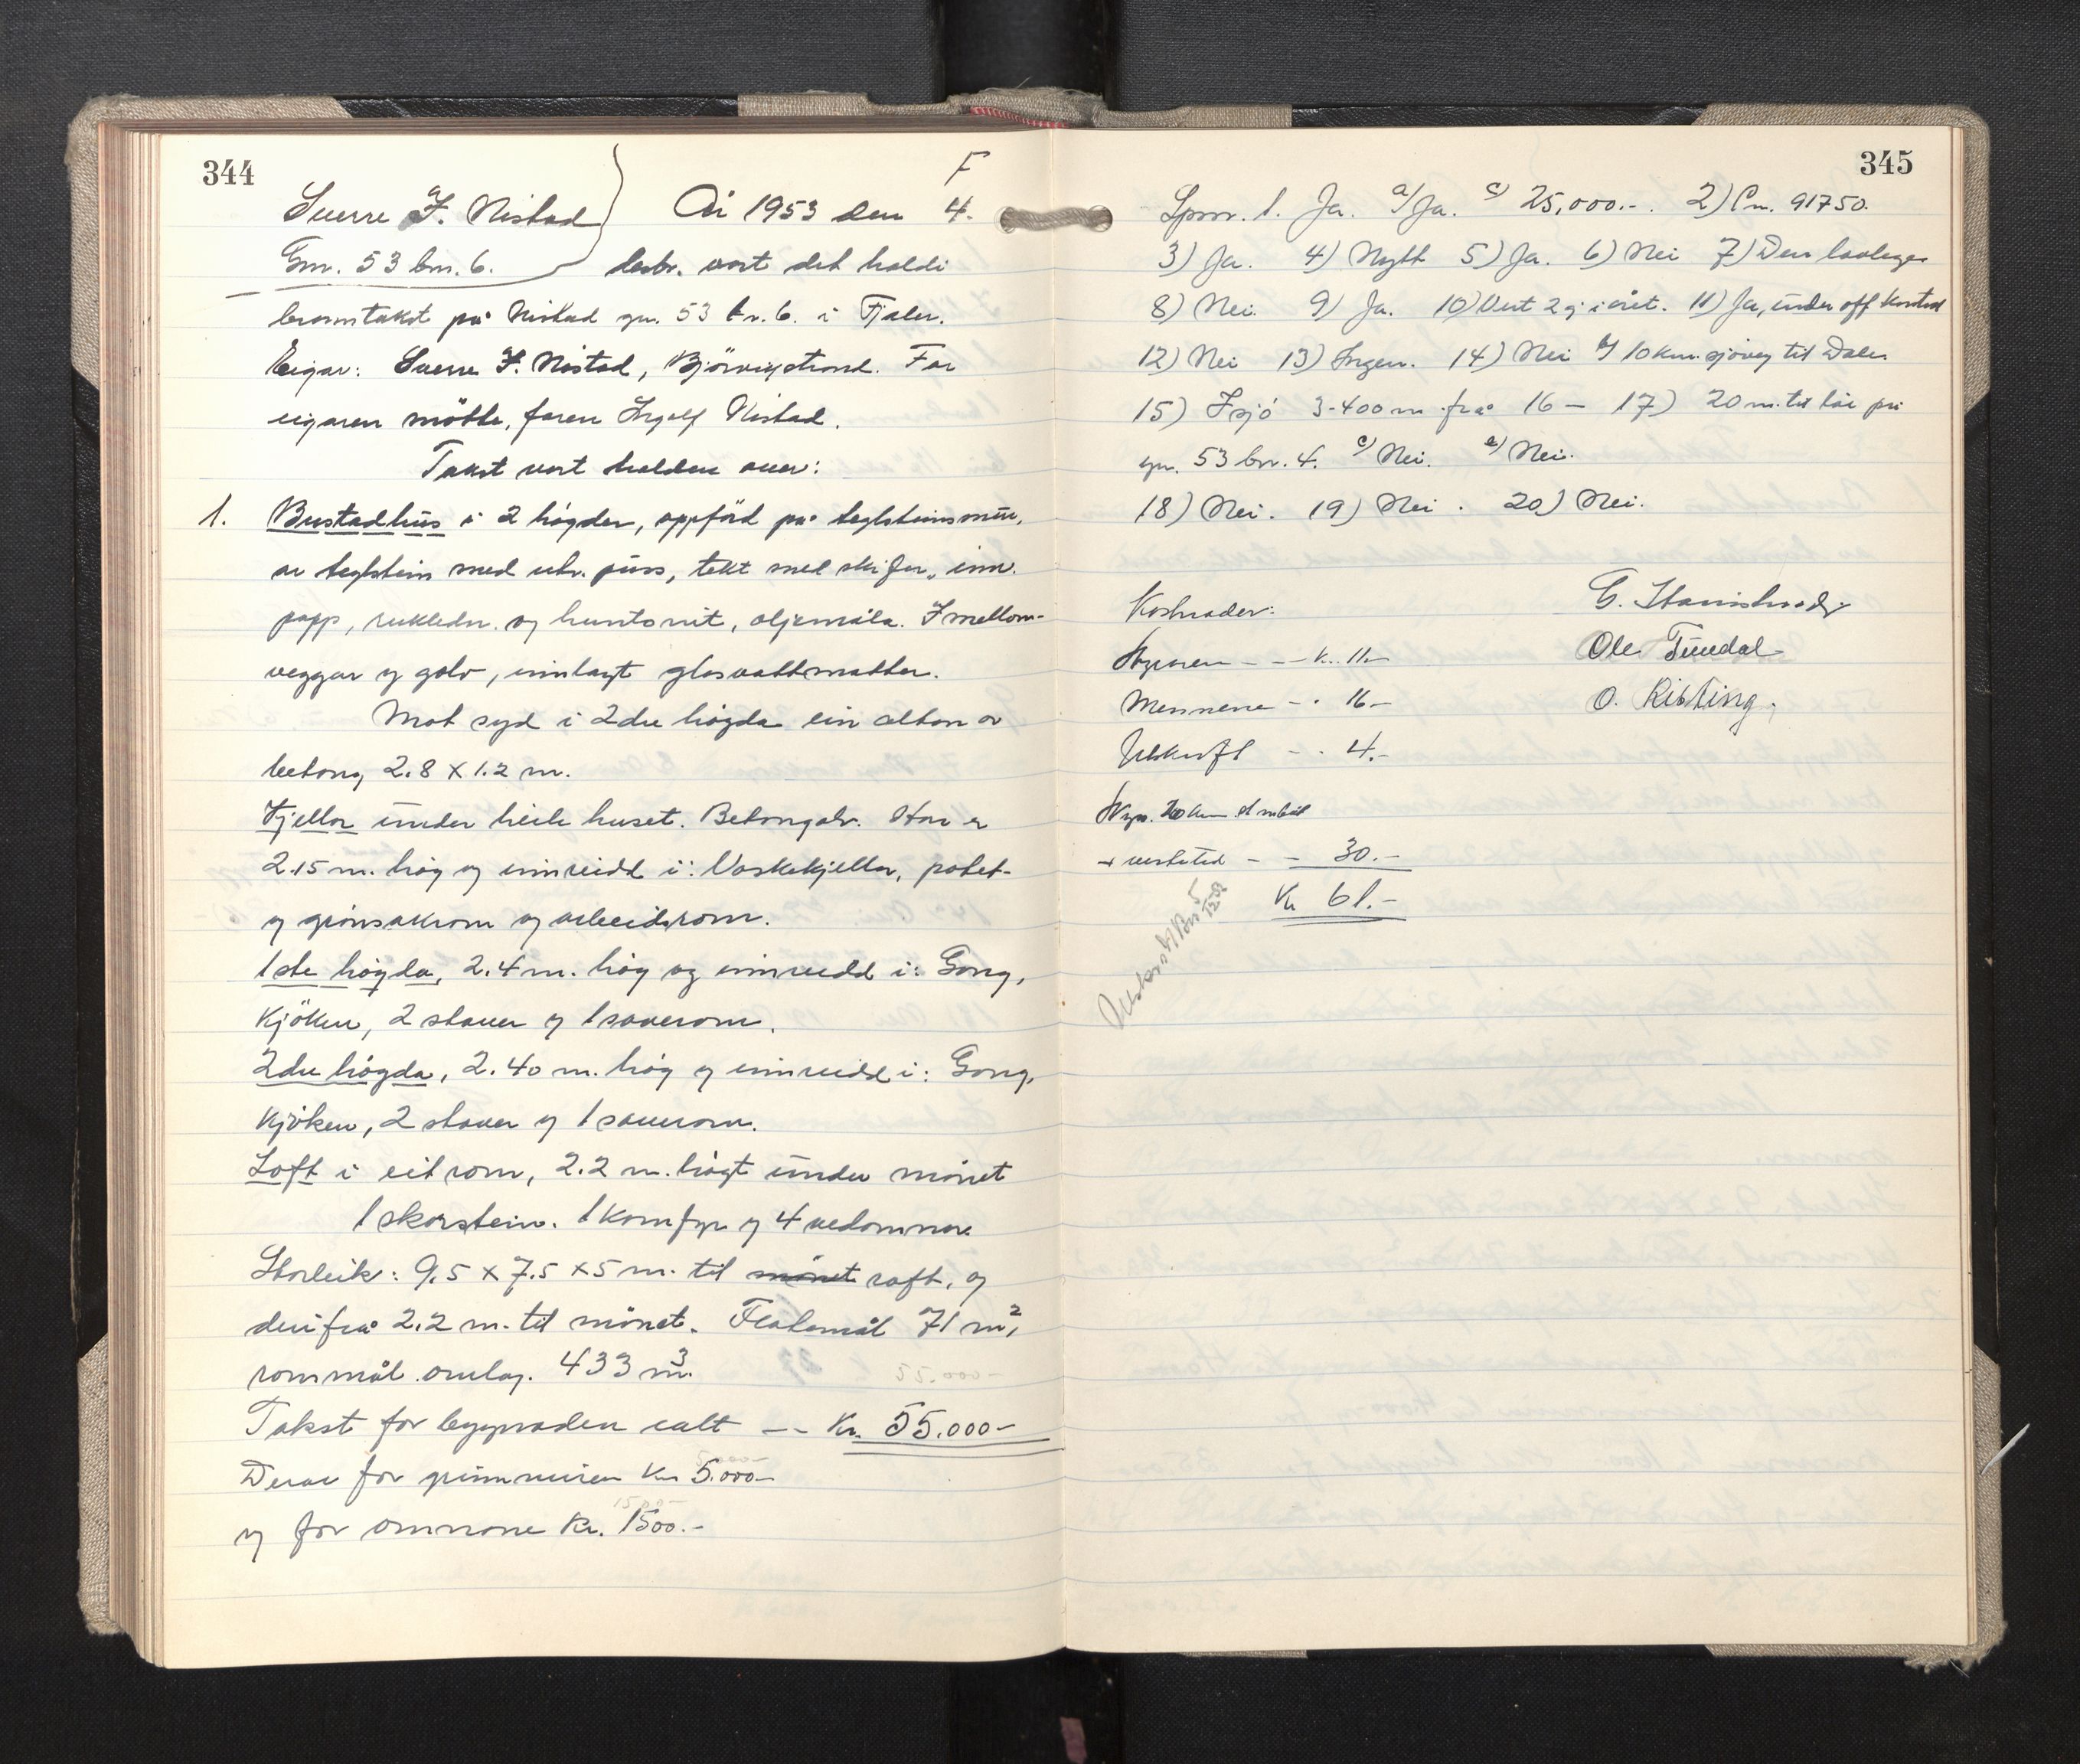 344
F
Sverre I. Nistad
År 1953 den 4.
Gnr. 53 bnr. 6.
desbr. vart det haldi
branntakst på Nistad gnr. 53 br. 6. i Fjaler.
Eigar: Sverre I. Nistad, Björvigstrand. For
eigaren møtte, faren Ingolf Nistad.
Takst vart halden over:
1. Bustadhus i 2 høgder, oppförd på teglsteinsmur,
av teglstein med utv. puss, tekt med skifer, innv.
papp, rukledn. og huntonit, oljemåla. I mellom-
veggar og golv, innlagt glasvattmatter.
Mot syd i 2dre høgda ein altan av
betong 2.8 x 1.2 m.
Kjellar under heile huset. Betonggolv. Han er
2.15 m. høg og innreidd i: Vaskekjellar, potet-
og grønsakrom og arbeidsrom.
1ste høgda, 2.4 m. høg og innreidd i: Gang,
kjöken, 2 stover og 1 soverom.
2dre høgda, 2.40 m. høg og innreidd i: Gang,
kjøken, 2 stover og 1 soverom.
Loft i eit rom, 2.2 m. høgt under mønet
1 skorstein. 1 komfyr og 4 vedomnar.
Storleik: 9.5 x 7.5 x 5 m. til mønet raft, og
derifrå 2.2 m. til mønet. Flatemål 71 m²,
rommål omlag. 433 m³.
Takst for bygnaden ialt -- Kr. 55.000-
Derav for grunnmuren Kr 5.000-
og for omnane Kr. 1500.-
345
Spm. 1. Ja. a) Ja. c) 25,000.-. 2) Pn. 91750.
3) Ja. 4) Nytt 5) Ja. 6) Nei 7) Den lovlege
8) Nei. 9) Ja. 10) Vert 2 g i året. 11) Ja, under off kontrol
12) Nei 13) Ingen. 14) Nei b) 10 km. sjöveg til Dale.
15) I sjö 3-400 m frå 16 — 17) 20 m. til løe på
gn. 53 bnr. 4. c) Nei. e) Nei.
18) Nei. 19) Nei. 20) Nei.
Kostnader:
Styraren - - - K. 11.-
Mennene - . 16.-
Utskrift - . 4.-
Skyss. 20 km
30.-
Kr 61.-
Ole Tundal
O. Risting.